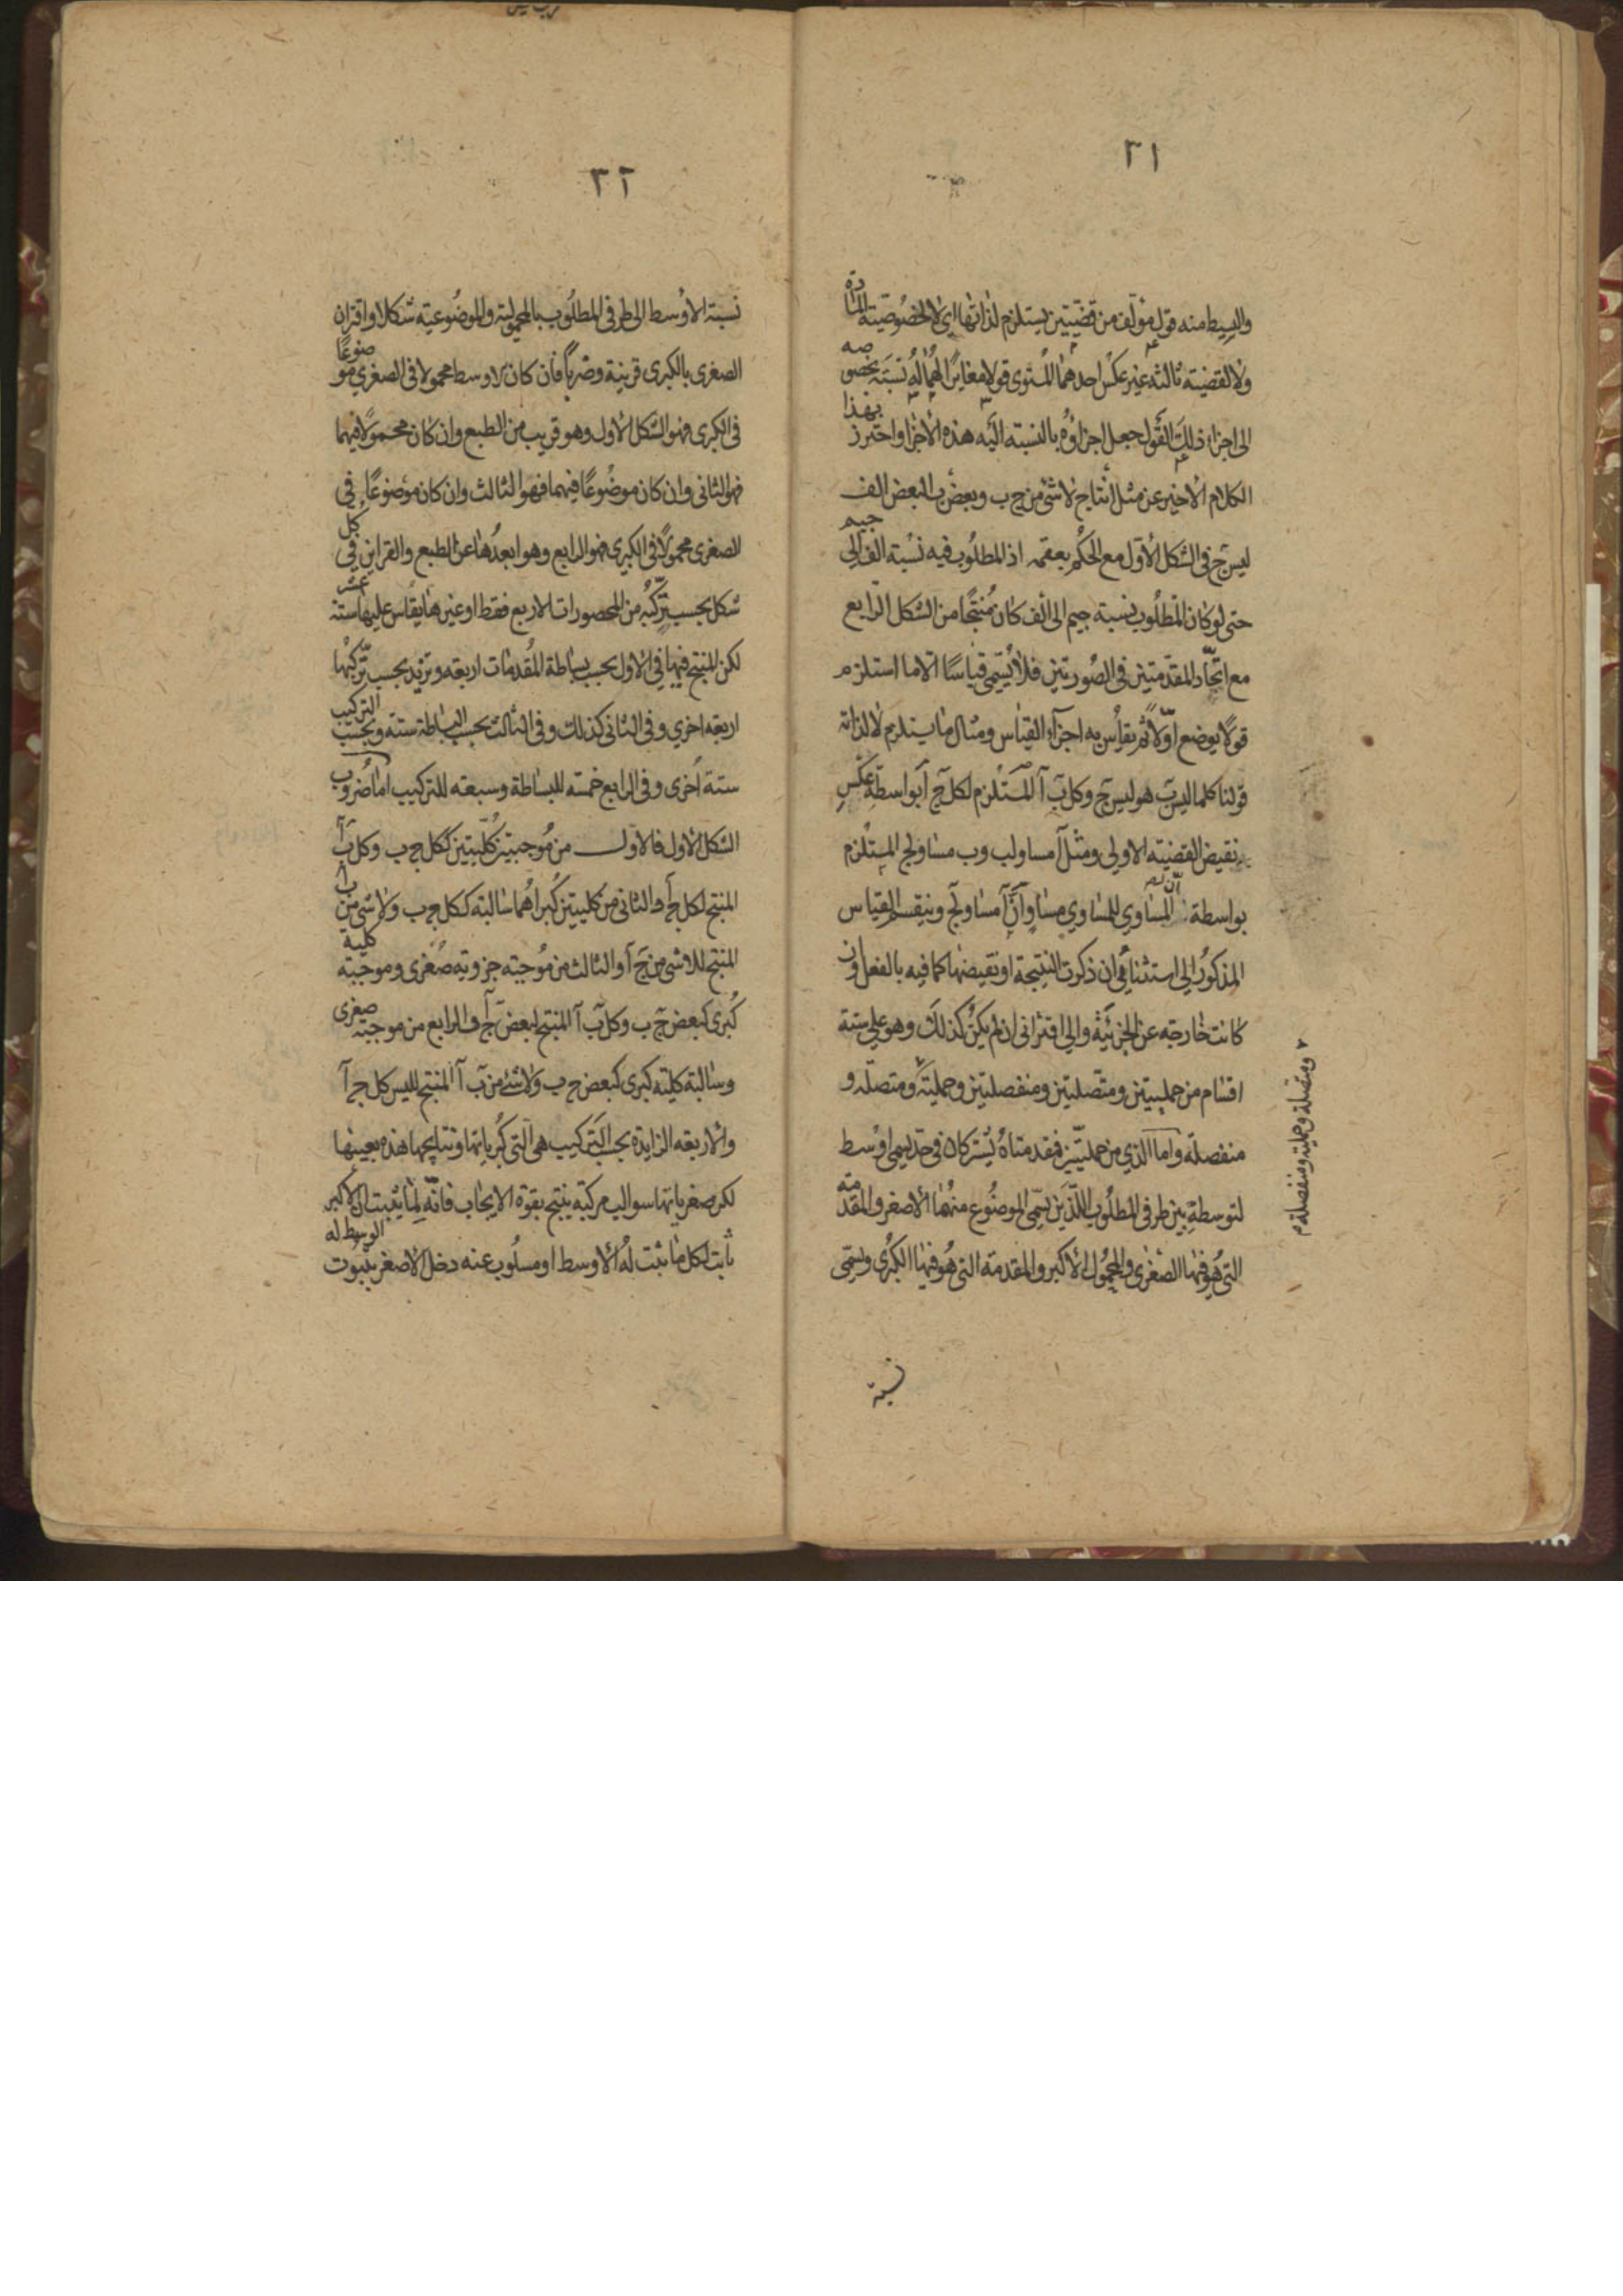 ٢١
والبسيط منه قول مؤلف من قضيتين يستلزم لذاتها اي لا لخصوصية المادة
ولا لقضية ثالثة غير عكس احدهما المستوى قولا مغايرًا لهما له نسبة بخصوصه
الى اجزاء ذلك القول جعل اجزاؤه بالنسبة اليه هذه الاجزا واحترز بهذا
الكلام الاخير عن مثل انتاج لا شئ من ج ب وبعض ب لبعض الف
ليس ج فى الشكل الاول مع الحكم بعقمه اذ المطلوب فيه نسبة الف الى جيم
حتى لو كان المطلوب نسبة جيم الى الف كان منتجًا من الشكل الرابع
مع اتحاد المقدمتين فى الصورتين فلا يسمى قياسًا الا ما استلزم
قولا يوضع اولا ثم يقاس به اجزاء القياس ومثال ما يستلزم لا لذاته
قولنا كلما ليس ب هو ليس ج وكل ب آ المستلزم لكل ج آ بواسطة عكس
نقيض القضية الاولى ومثل آ مساو لب وب مساو لج المستلزم
بواسطة ان المساوي للمساوي مساو ان آ مساو لج وينقسم القياس
المذكور الى استثنائى ان ذكرت النتيجة او نقيضها كما فيه بالفعل وان
كانت خارجه عن الجزئية والى اقترانى ان لم يكن كذلك وهو على ستة
اقسام من حمليتين ومتصلتين ومنفصلتين وحملية ومتصله و
منفصلة واما الذي من حمليتين فمقدمتاه يشتركان فى حد يسمى اوسط
لتوسطه بين طرفى المطلوب اللذين يسمى الموضوع منهما الاصغر والمقدمه
التى هو فيها الصغرى والمحمول الاكبر والمقدمة التى هو فيها الكبرى وسمى
ومتصلة وحملية ومنفصلة م
نسبة
٢٢
نسبة الاوسط الى طرفى المطلوب بالمحمولية والموضوعية شكلا واقتران
الصغرى بالكبرى قرينة وضربًا فان كان الاوسط محمولا فى الصغرى موضوعًا
فى الكبرى فهو الشكل الاول وهو قريب من الطبع وان كان محمولا فيهما
فهو الثانى وان كان موضوعًا فيهما فهو الثالث وان كان موضوعًا فى
الصغرى محمولا فى الكبرى فهو الرابع وهو ابعدها عن الطبع والقراين فى كل
شكل بحسب تركبه من المحصورات الاربع فقط او غيرها يقاس عليها ستة عشر
لكن المنتج فيها فى الاول بحسب بساطة المقدمات اربعه وتزيد بحسب تركبها
اربعه اخري وفى الثانى كذلك وفى الثالث بحسب البساطة ستة وبحسب التركيب
ستة اخرى وفى الرابع خمسة للبساطة وسبعه للتركيب اما ضروب
الشكل الاول فالاول من موجبتين كليتين ككل ج ب وكل ب آ
المنتج لكل ج آ والثانى من كليتين كبراهما سالبة ككل ج ب ولا شى من ب آ
المنتج للا شى من ج آ والثالث من موجبه جزويه صغرى وموجبه كلية
كبرى كبعض ج ب وكل ب آ المنتج لبعض ج آ والرابع من موجبة صغرى
وسالبة كلية كبرى كبعض ج ب ولا شئ من ب آ المنتج لليس كل ج آ
والاربعه الزايدة بحسب التركيب هى التى كبرياتها ونتايجها هذه بعينها
لكن صغرياتها سوالب مركبه ينتج بقوة الايجاب فانه لما يثبت ان الاكبر
ثابت لكل ما ثبت له الاوسط او مسلوب عنه دخل الاصغر بثبوت الوسط له